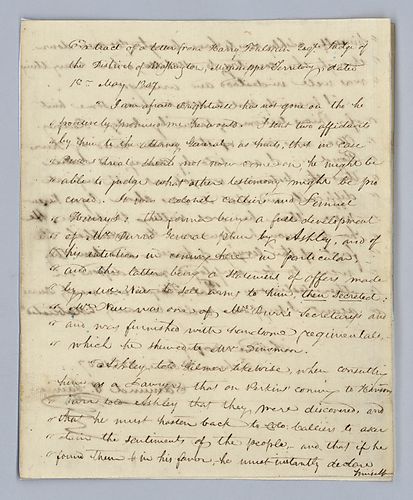 Extract of a letter from Harry Toulmin Esqr. Judge of
the District of Washington, Mississippi Territory, dated
1st. May 1807.
I am afraid Brightwell has not gone on tho' he
positively promised me he would. I sent two affidavits
by him to the Attorney General as trials, that in case
Burr's trial should not now come on he might be
able to judge what other testimony might be pro
cured. It is a colonel Calliers and Lemuel
Henry's: The former being a full development
of Mr. Burrs General plan by Ashley, and of
his intentions in coming here in particular:
and the latter being a statement of offers made
by Mr. to sell arms to him, then secreted:
Mr. was one of Mr. Burr's Secretarys and
and was furnished with handsome regimentals,
which he shewed to Mr. Simmons.
Ashley told likewise, when consulting
him as a Lawyer, that on Perkins' coming to Hinson
Burr told Ashley that they were discovered, and
that he must hasten back to Colo. Calliers to ascer
tain the sentiments of the people, and that if he
found them in his favor, he must instantly declare
himself